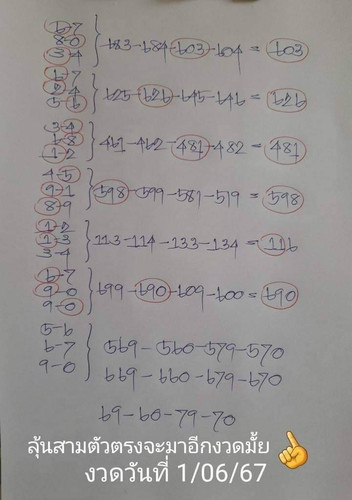 6-7
8-0 } 683-684-603-604 = 603
3-4
6-7
2-4 } 625-626-645-646 = 626
5-6
3-4
6-8 } 461-462-481-482 = 481
1-2
4-5
9-1 } 598-599-581-519 = 598
8-9
1-2
1-3 } 113-114-133-134 = 116
3-4
6-7
9-0 } 699-690-609-600 = 690
9-0
5-6
6-7 } 569-560-579-570
9-0 669-660-679-670
69-60-79-70
ลุ้นสามตัวตรงจะมาอีกงวดมั้ย 👆
งวดวันที่ 1/06/67